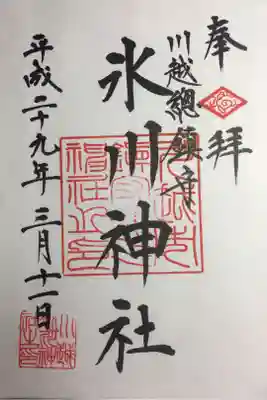 奉拝
川越總鎮守
氷川神社
平成二十九年三月十一日